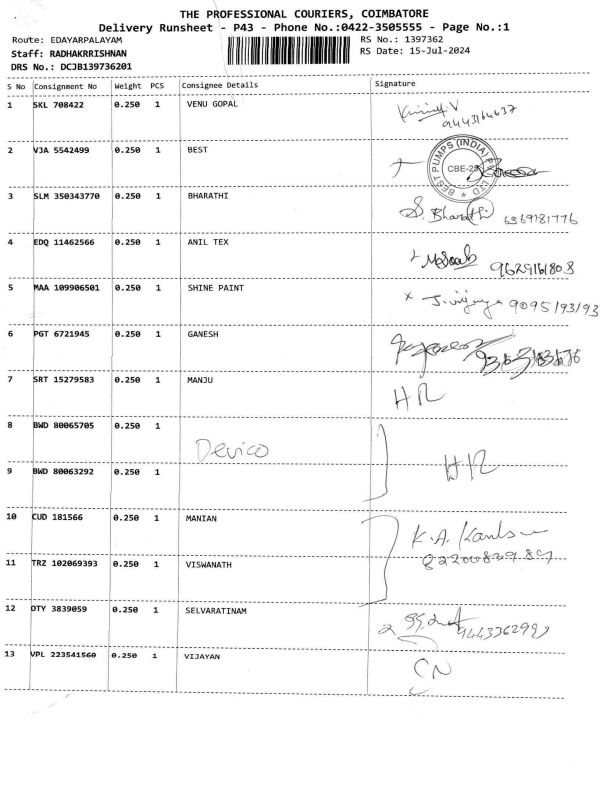 THE PROFESSIONAL COURIERS, COIMBATORE
Delivery Runsheet - P43 - Phone No.:0422-3505555 - Page No.:1
Route: EDAYARPALAYAM RS No.: 1397362
Staff: RADHAKRRISHNAN RS Date: 15-Jul-2024
DRS No.: DCJB139736201
S No Consignment No Weight PCS Consignee Details Signature
1 SKL 708422 0.250 1 VENU GOPAL
9443164637
2 VJA 5542499 0.250 1 BEST
BEST PUMPS (INDIA) P LTD
3 SLM 350343770 0.250 1 BHARATHI S. Bharathi 6369181776
4 EDQ 11462566 0.250 1 ANIL TEX
9629161808
5 MAA 109906501 0.250 1 SHINE PAINT x J. vijaya 9095193193
6 PGT 6721945 0.250 1 GANESH
7 SRT 15279583 0.250 1 MANJU HR
8 BWD 80065705 0.250 1
Devico HR
9 BWD 80063292 0.250 1
10 CUD 181566 0.250 1 MANIAN K.A.
11 TRZ 102069393 0.250 1 VISWANATH
12 OTY 3839059 0.250 1 SELVARATINAM
13 VPL 223541560 0.250 1 VIJAYAN CN